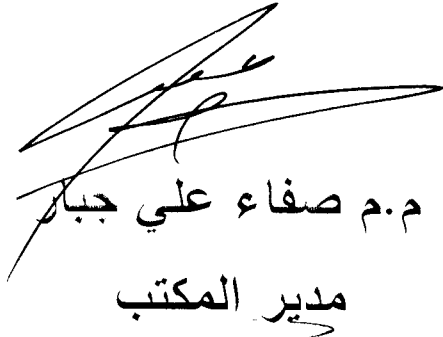 م.م صفاء علي جبار
مدير المكتب